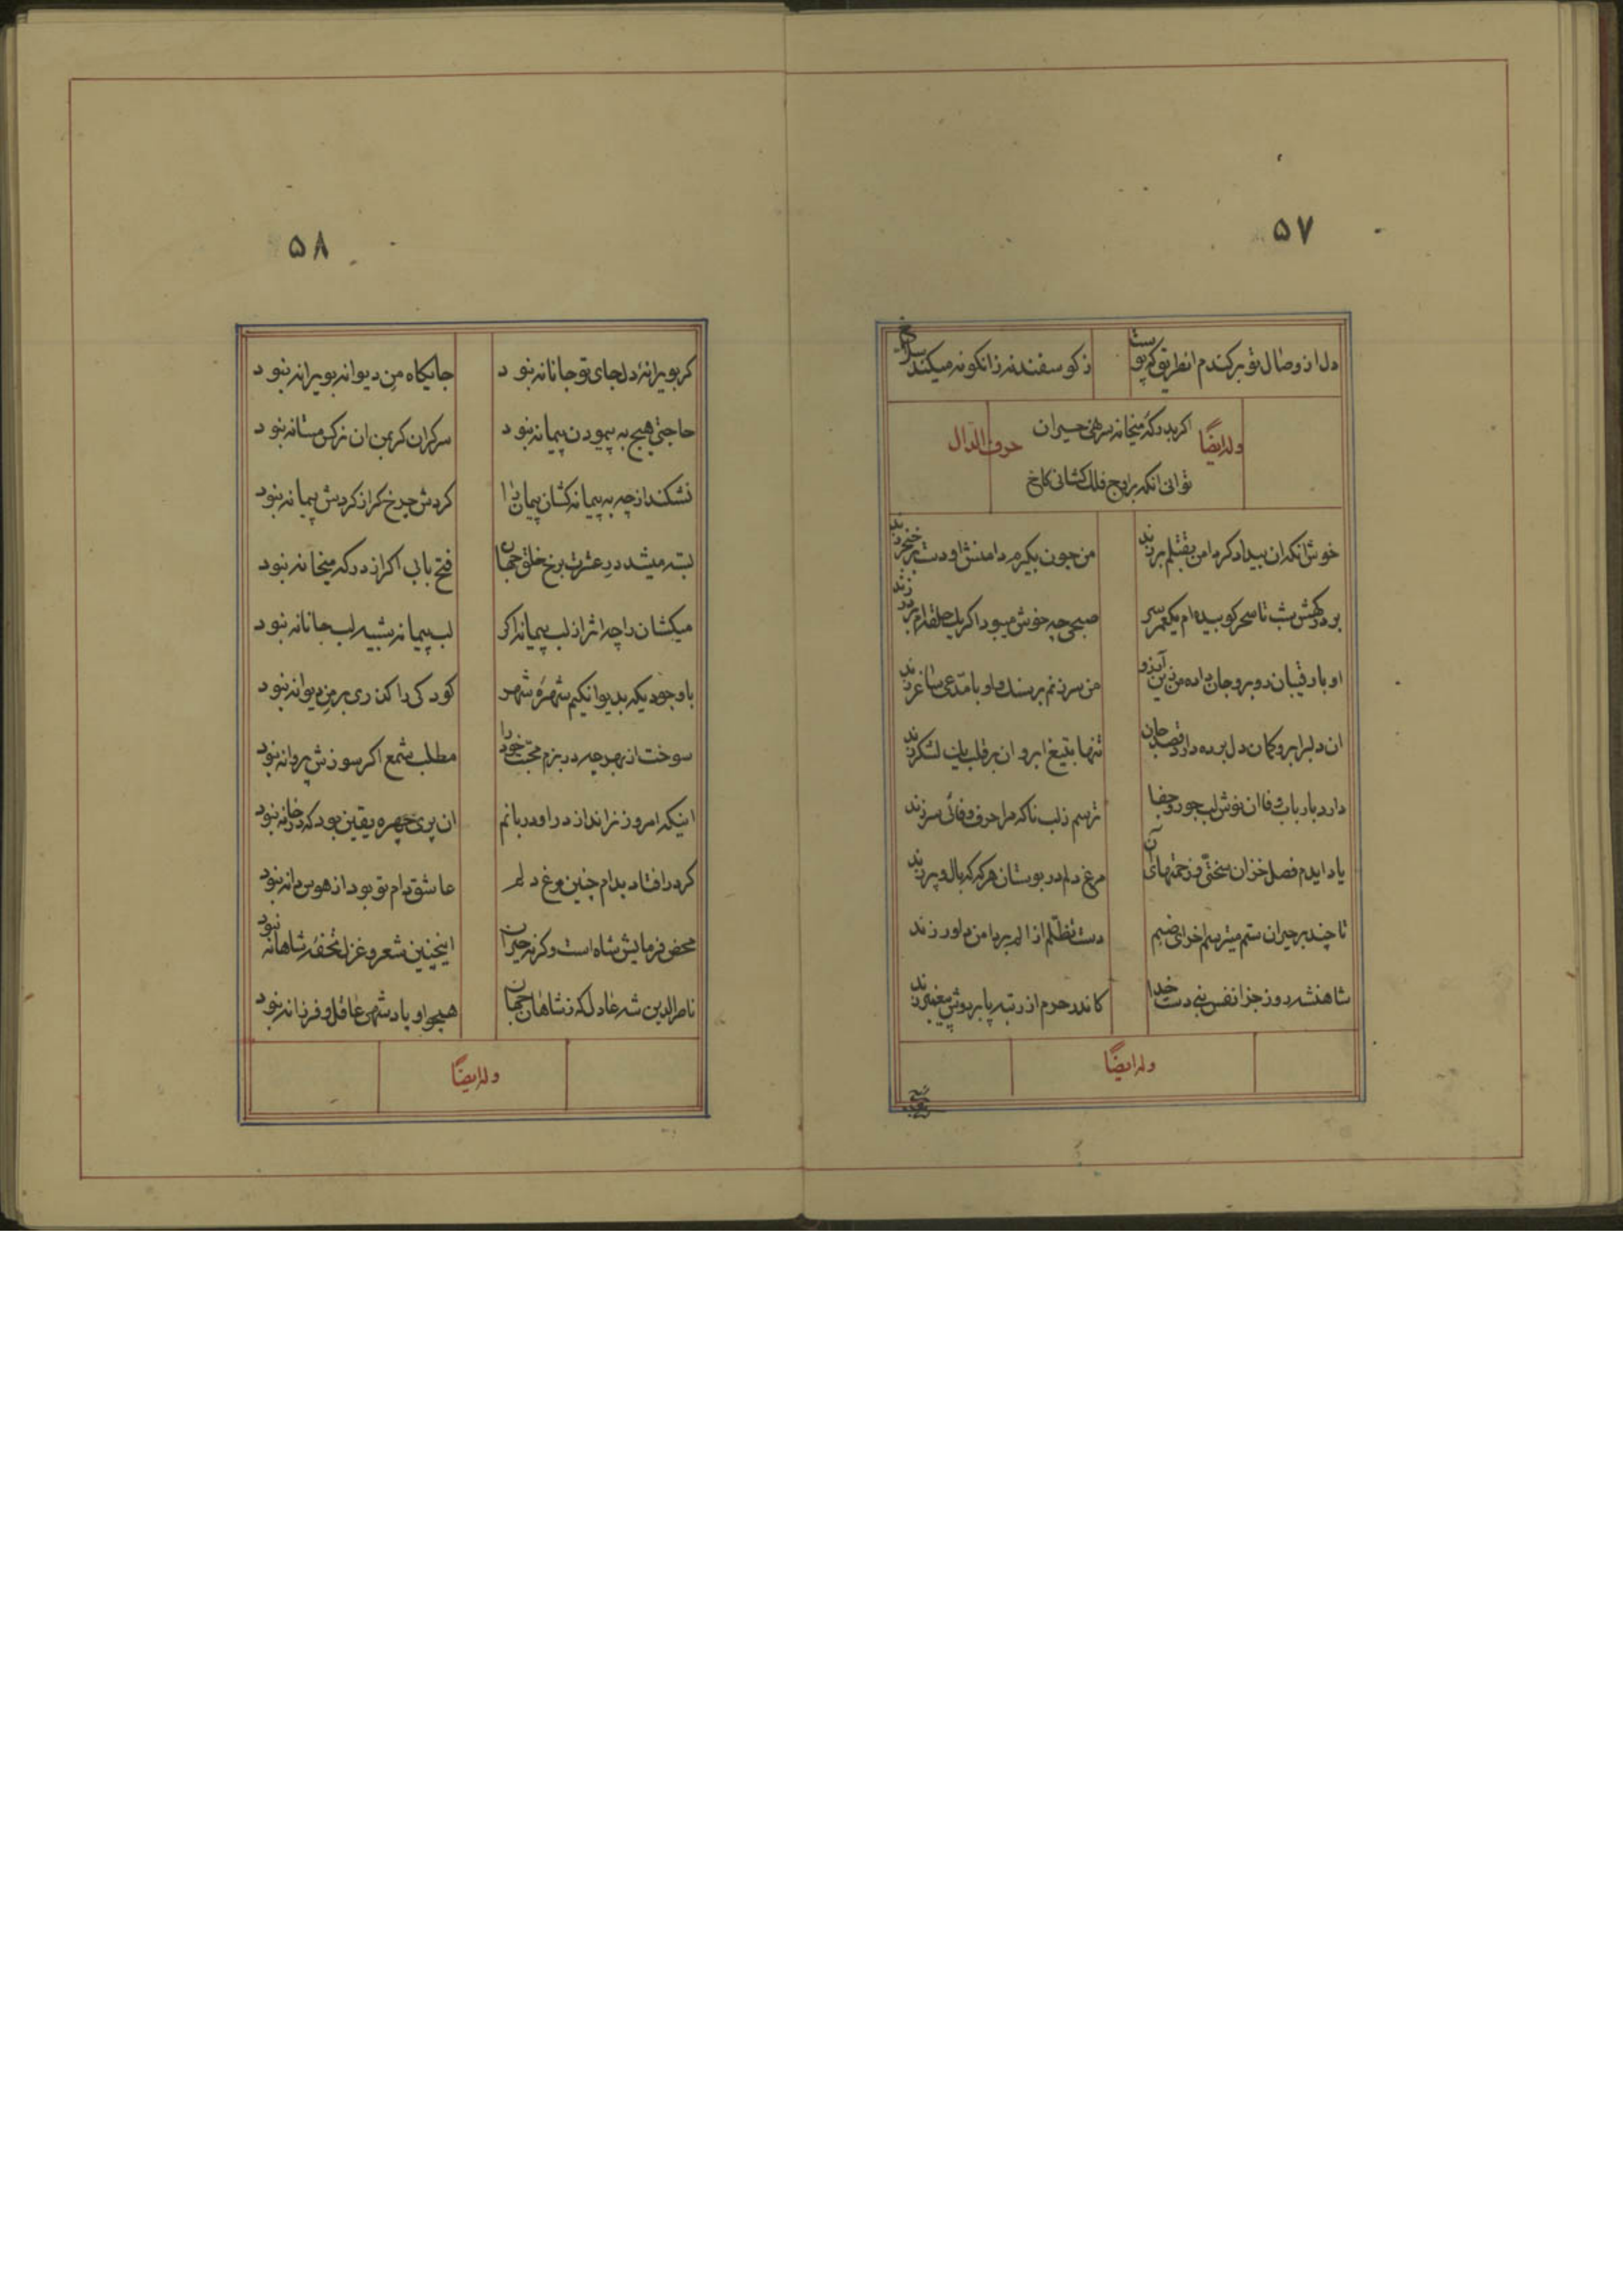 ۵۷
دل از وصال تو برکندم انطریق که پوست
ز کوسفند نه زانکونه میکند سلاخ
وله ایضاً
اکر بدرکه میخانه سر نهی حیران
توانی انکه براوج فلک کشانی کاخ
حرف الدال
خوش انکه ان بیدادکر دامن بقتلم بر زند
من چون بکیرم دامنش او دست بر خنجر زند
بر درکهش شب تا سحر کوبیده ام یکعمر سر
صبحی چه خوش میبود اکر یک حلقه ام بر در زند
او با رقیبان روبرو جان داده من زین آرزو
من سر زنم بر سنک و او با مدعی ساغر زند
ان دلبر ابرو کمان دل برده دارد قصد جان
تنها بتیغ ابروان بر قلب یک لشکر زند
دارد بارباب وفا ان نوش لب جور و جفا
ترسم ز لب ناکه مرا حرف وفائی سر زند
یاد ایدم فصل خزان سختی و زحمتهای آن
مرغ دلم در بوستان هرکه که بال و پر زند
تا چند بر حیران ستم میترسم اخر ای صنم
دست تظلم از الم بر دامن داور زند
شاهنشه روز جزا نفس نبی دست خدا
کاندر حرم از رتبه پا بر دوش پیغمبر زند
وله ایضاً
۵۸
کر بویرانهٔ دل جای تو جانانه نبود
جایکاه من دیوانه بویرانه نبود
حاجتی هیچ به پیمودن پیمانه نبود
سرکران کر بمن ان نرکس مستانه نبود
نشکند از چه به پیمانه کشان پیمان را
کردش چرخ کر از کردش پیمانه نبود
بسته میشد در عشرت برخ خلق جهان
فتح بابی اکر از درکه میخانه نبود
میکشان را چه اثر از لب پیمانه اکر
لب پیمانه شبیه لب جانانه نبود
باوجودیکه بدیوانکیم شهره شهر
کودکی را کذری بر من دیوانه نبود
سوخت از بهر چه در بزم محبت خود را
مطلب شمع اکر سوزش پروانه نبود
اینکه امروز نزاندار در او دربانم
ان پری چهره یقین بود که در خانه نبود
کر در افتاد بدام چنین مرغ دلم
عاشق دام تو بود از هوس دانه نبود
محض فرمایش شاه است وکرنه حیران
اینچنین شعر و غزل تحفه شاهانه نبود
ناصرالدین شه عادل که ز شاهان جهان
همچو او پادشهی عاقل و فرزانه نبود
وله ایضاً